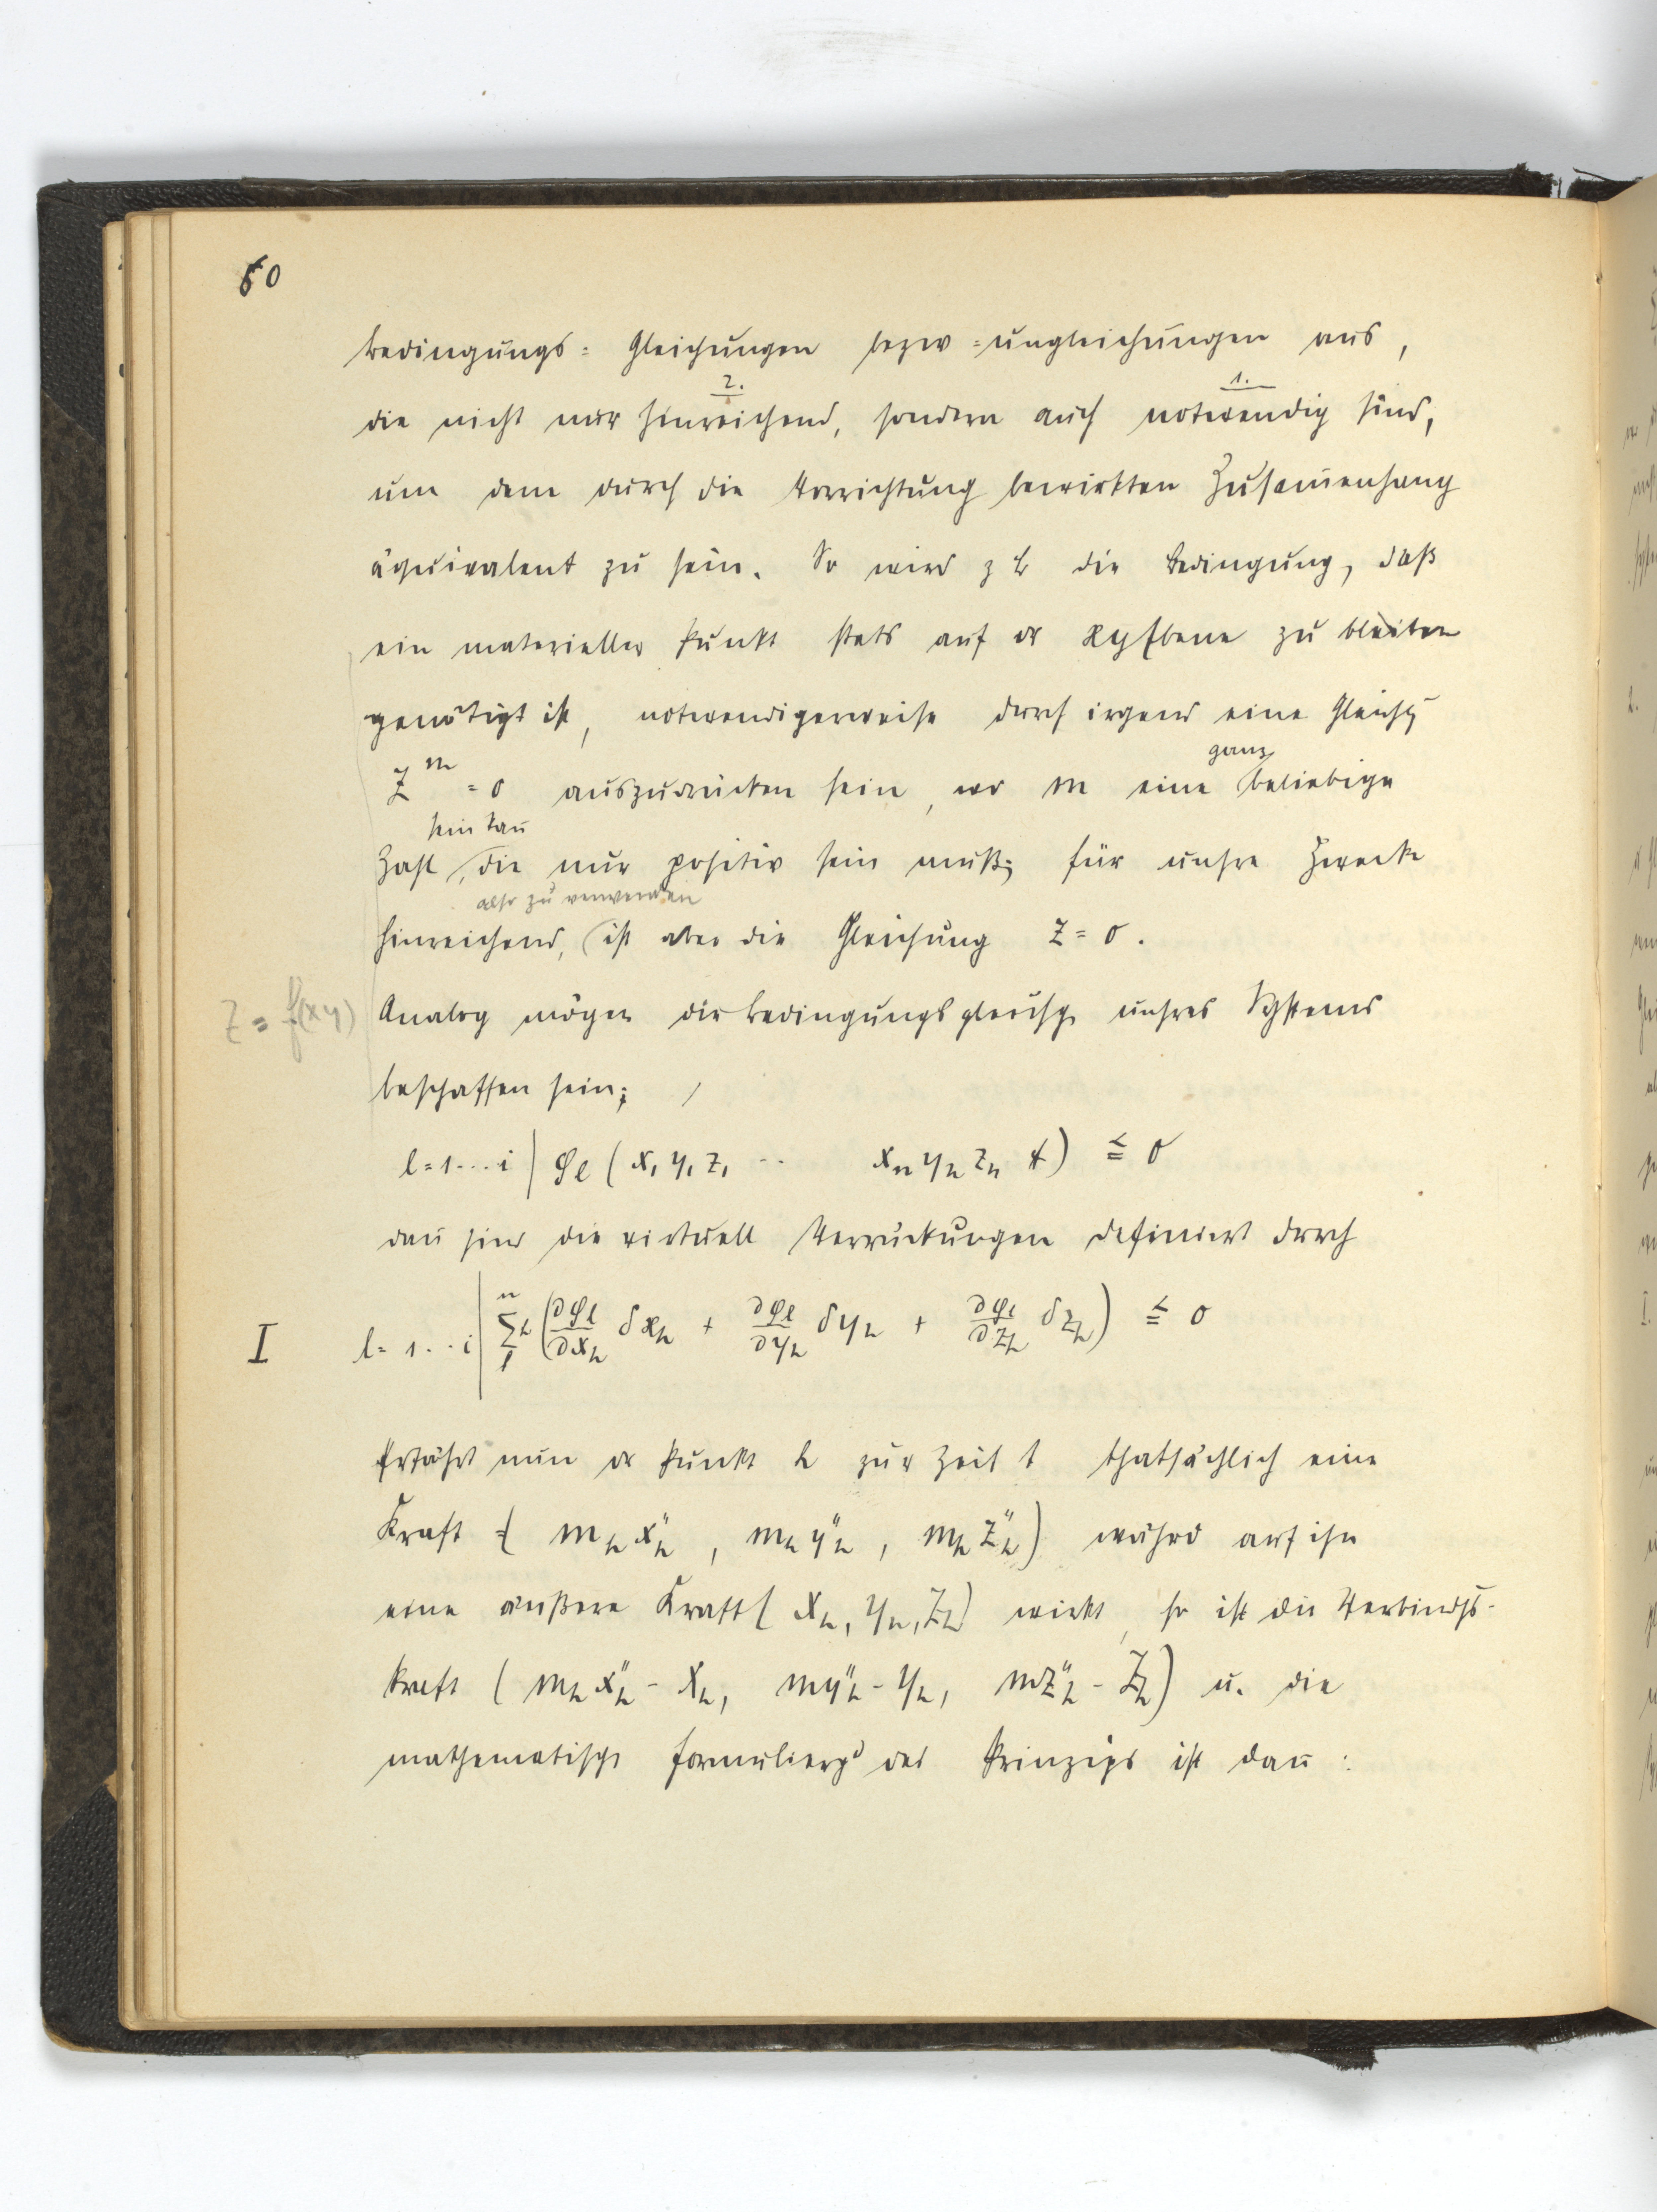 60
Bedingungs= Gleichungen bezw =ungleichungen aus,
2. 1.
die nicht nur hinreichend, sondern auch notwendig sind,
um dem durch die Vorrichtung bewirkten Zusam̄enhang
äquivalent zu sein. So wird z B die Bedingung, daß
ein materieller Punkt stets auf dr xy Ebene zu bleiben
genötigt ist, notwendigerweise durch irgend eine Gleichg
ganz
z^m = 0 auszudrücken sein, wo m eine beliebige
sein kan̄
Zahl, die nur positiv sein muß; für unsre Zwecke
also zu verwenden
hinreichend, ist aber die Gleichung z = 0.
z = f(xy) Analog mögen die Bedingungsgleichg unsres Systems
beschaffen sein;
l=1...i | φ_l (x_1 y_1 z_1 ... x_n y_n z_n t) ≦ 0
dan̄ sind die virtuell Verrückungen definiert durch
I l= 1...i | Σ_1^n h (∂φ_l/∂x_h δx_h + ∂φ_l/∂y_h δy_h + ∂φ_l/∂z_h δz_h) ≦ 0
Erfährt nun dr Punkt h zur Zeit t thatsächlich eine
Kraft = (m_h x''_h, m_h y''_h, m_h z''_h) währd auf ihn
eine äußere Kraft (X_h, Y_h, Z_h) wirkt, so ist die Verbindgs-
kraft (m_h x''_h - X_h, my''_h - Y_h, mz''_h - Z_h) u. die
mathematische Formulierg des Prinzips ist dan̄: